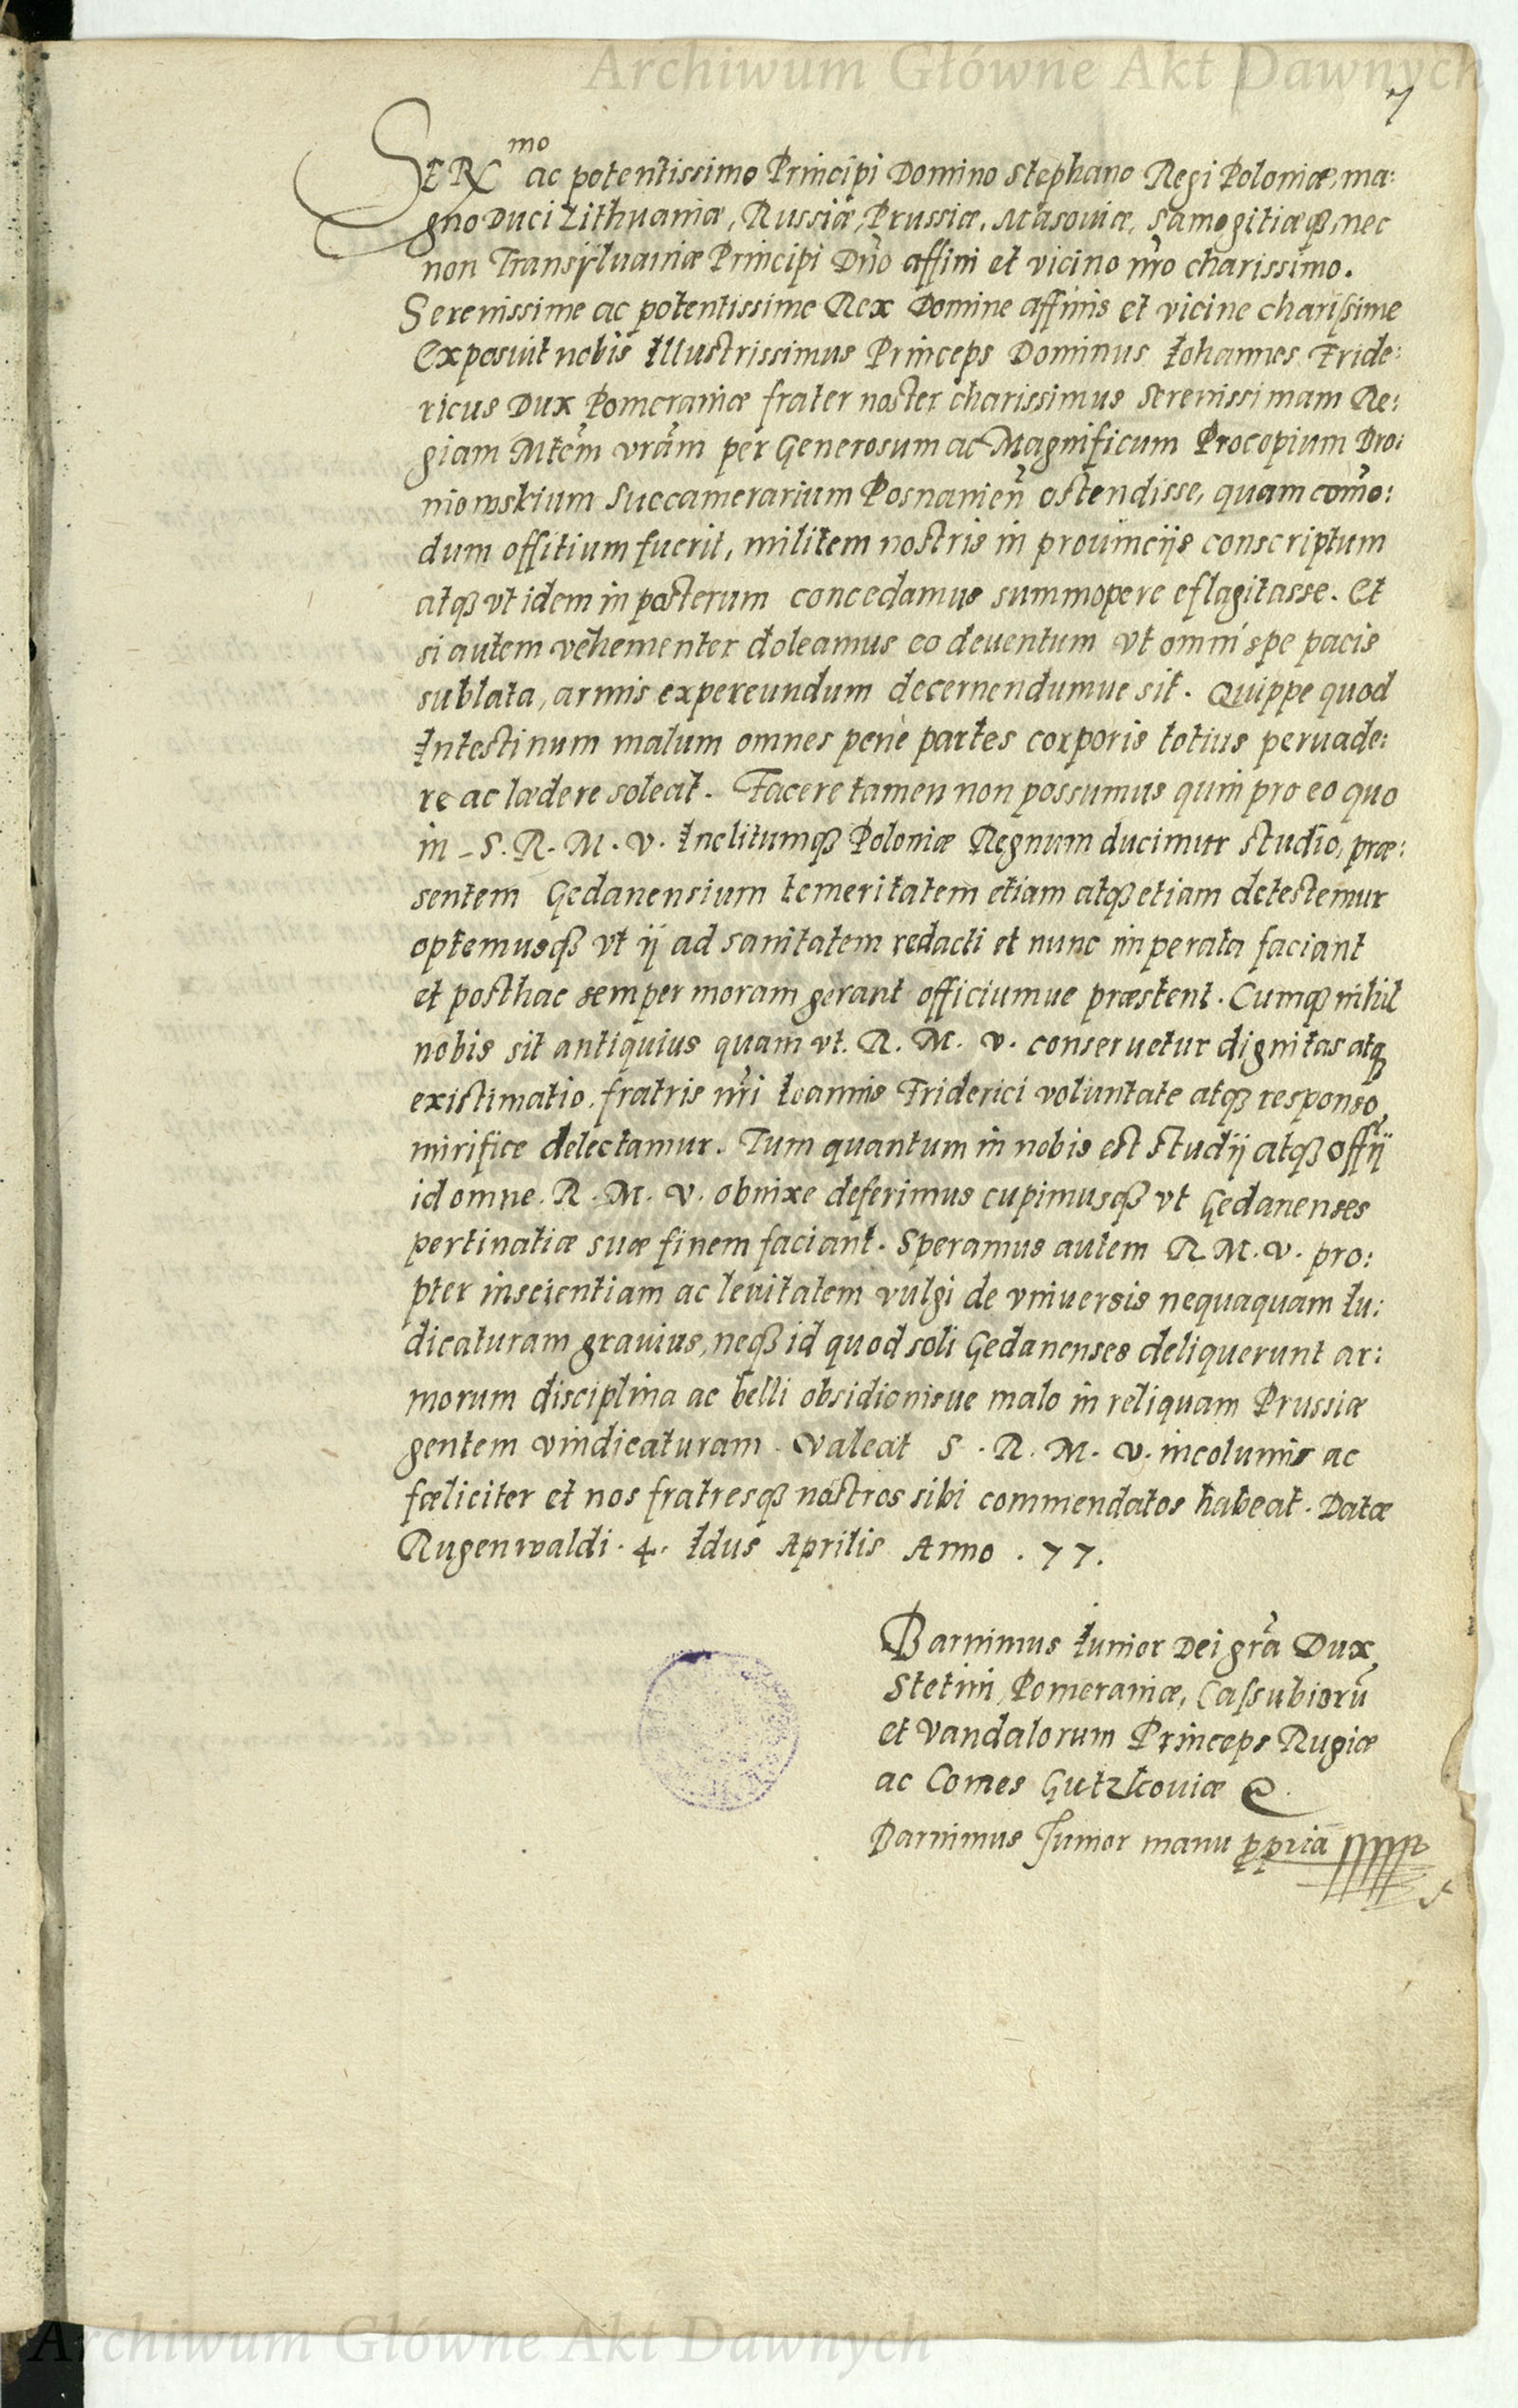 Archiwum Główne Akt Dawnych
7
SERmo ac potentissimo Principi Domino Stephano Regi Poloniæ, ma:
gno Duci Lithuaniæ, Russiæ, Prussiæ, Masoviæ, Samogitiæqȝ, nec
non Transÿluaniæ Principi Dn̄o affini et vicino nr̄o charissimo.
Serenissime ac potentissime Rex Domine affinis et vicine charissime
Exposuit nobis Illustrissimus Princeps Dominus Iohannes Fride:
ricus Dux Pomeraniæ frater noster charissimus Serenissimam Re:
giam Mtēm vrām per Generosum ac Magnificum Procopium Bro:
niowskium Succamerarium Posnanien̄ ostendisse, quam com̄o:
dum offitium fuerit, militem nostris in prouincijs conscriptum
atqȝ vt idem in posterum concedamus summopere eflagitasse. Et
si autem vehementer doleamus eo deuentum vt omni spe pacis
sublata, armis expereundum decernendumue sit. Quippe quod
Intestinum malum omnes penè partes corporis totius peruade:
re ac lædere soleat. Facere tamen non possumus quin pro eo quo
in S. R. M. V. Inclitumqȝ Poloniæ Regnum ducimur studio, præ:
sentem Gedanensium temeritatem etiam atqȝ etiam detestemur
optemusqȝ vt ij ad sanitatem redacti et nunc imperata faciant
et posthac semper moram gerant officiumue præstent. Cumqȝ nihil
nobis sit antiquius quam vt. R. M. V. conseruetur dignitas atqȝ
existimatio, fratris nr̄i Ioannis Friderici voluntate atqȝ responso
mirifice delectamur. Tum quantum in nobis est studij atqȝ offij
id omne. R. M. V. obnixe deferimus cupimusqȝ vt Gedanenses
pertinatiæ suæ finem faciant. Speramus autem R. M. V. pro:
pter inscientiam ac leuitatem vulgi de vniuersis nequaquam Iu:
dicaturam grauius, neqȝ id quod soli Gedanenses deliquerunt ar:
morum disciplina ac belli obsidionisue malo in reliquam Prussiæ
gentem vindicaturam. Valeat S. R. M. V. incolumis ac
fæliciter et nos fratresqȝ nostros sibi commendatos habeat. Datæ
Rugenwaldi. 4. Idus Aprilis Anno. 77.
Barnimus Iunior Dei gr̄a Dux
Stetini, Pomeraniæ, Cassubiorū
et Vandalorum Princeps Rugiæ
ac Comes Gutzkouiæ
Barnimus Junior manu ppriā
Archiwum Główne Akt Dawnych